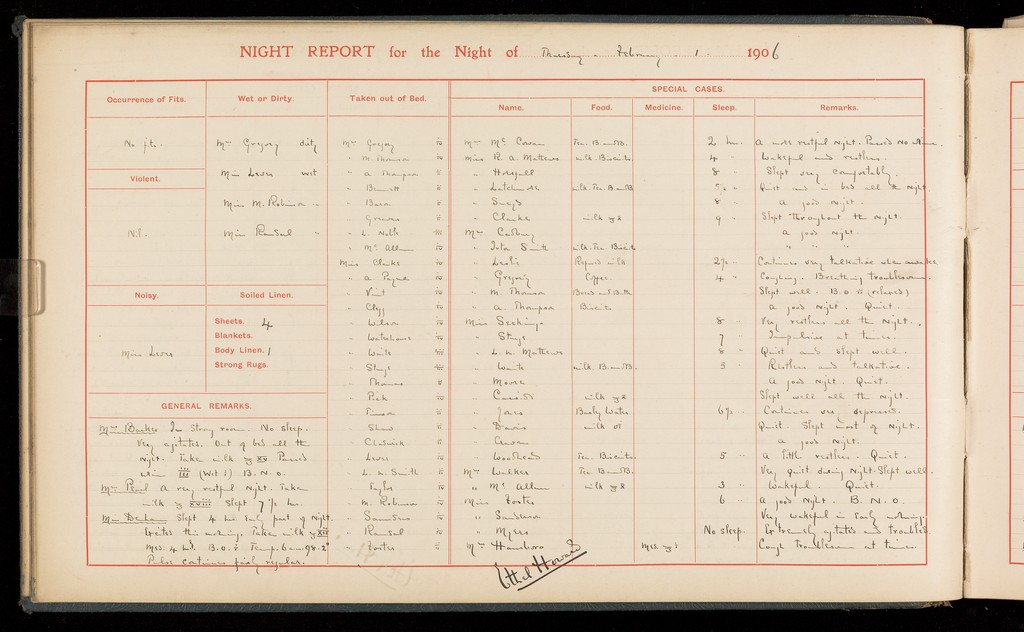 NIGHT REPORT for the Night of Thursday - February - 1 - 1906
Occurrence of Fits.
No fits.
Violent.
Nil.
Noisy.
Miss Lever
Wet or Dirty.
Mrs Gregory dirty
Miss Lever wet
Miss M. Robinson "
Miss Randal "
Soiled Linen.
Sheets. 4
Blankets.
Body Linen. 1
Strong Rugs.
GENERAL REMARKS.
Mrs Barker In Strong room. No sleep.
Very agitated. Out of bed all the
night. Taken milk Passed
urine iii (Wet 1) B. N. O.
A very restful night. Taken
milk Slept 7 1/2 hrs.
Slept 4 hrs early part of night.
this morning. Taken milk
Med. 4 B.O. Temp. 6 am 98.2°
Pulse continues fairly regular.
Taken out of Bed.
Mrs Gregory
" M. Thomson
" A Thompson
" Bennett
" Bacon
" Greaves
" L. Noble
" Mc Allum
Miss Clarke
" A. Payne
" Vint
" Clegg
" Wilson
" Waterhouse
" Waite
" Stays
" Thomas
" Peck
" Shaw
" Chadwick
" Lever
" L. M. Smith
" Taylor
" M. Robinson
" Saunders
" Randal
" Foster
SPECIAL CASES.
Name. Food. Medicine. Sleep. Remarks.
Mrs Mc Cowan Tea. B. and B. 2 hrs. A more restful night. Passed no urine.
Miss R. A. Mathews milk. Biscuits 4 " Wakeful and restless.
" Horsfall 8 " Slept very comfortably.
" milk. Tea. B and B 5 1/2 " Quiet and in bed all the night
" 8 " A good night.
" Clarke milk 9 " Slept throughout the night.
Mrs Cadbury A good night.
" Smith milk. Tea. Biscuits " " "
" Leslie Refused milk 2 1/2 " Continues very talkative when awake.
" Gregory Coffee 4 " Coughing. Breathing troublesome.
" M. Thomson Bread and Butter Slept well. B.O. (relieved)
" A. Thompson Biscuits A good night. Quiet.
Miss Seckings 8 " Very restless all the night.
" Stays 7 " Impulsive at times.
" L. M. Mathews 8 " Quiet and slept well.
" Waite milk. B and B. 5 " Restless and talkative.
" Moore A good night. Quiet.
" milk Slept well all the night.
" Barley Water 6 1/2 " Continues very depressed.
" Davis milk Quiet. Slept most of night.
" A good night.
" Woodhead Tea. Biscuits 5 " A little restless. Quiet.
Mrs Walker Tea. B and B. Very quiet during night. Slept well.
" Mc Allum milk 3 " Wakeful. Quiet.
Miss Foster 6 " A good night. B. N. O.
" Sanderson Very wakeful in early morning.
" Myers No sleep. Extremely agitated and troubled.
Mrs Med. Cough troublesome at times.
Ethel Howard